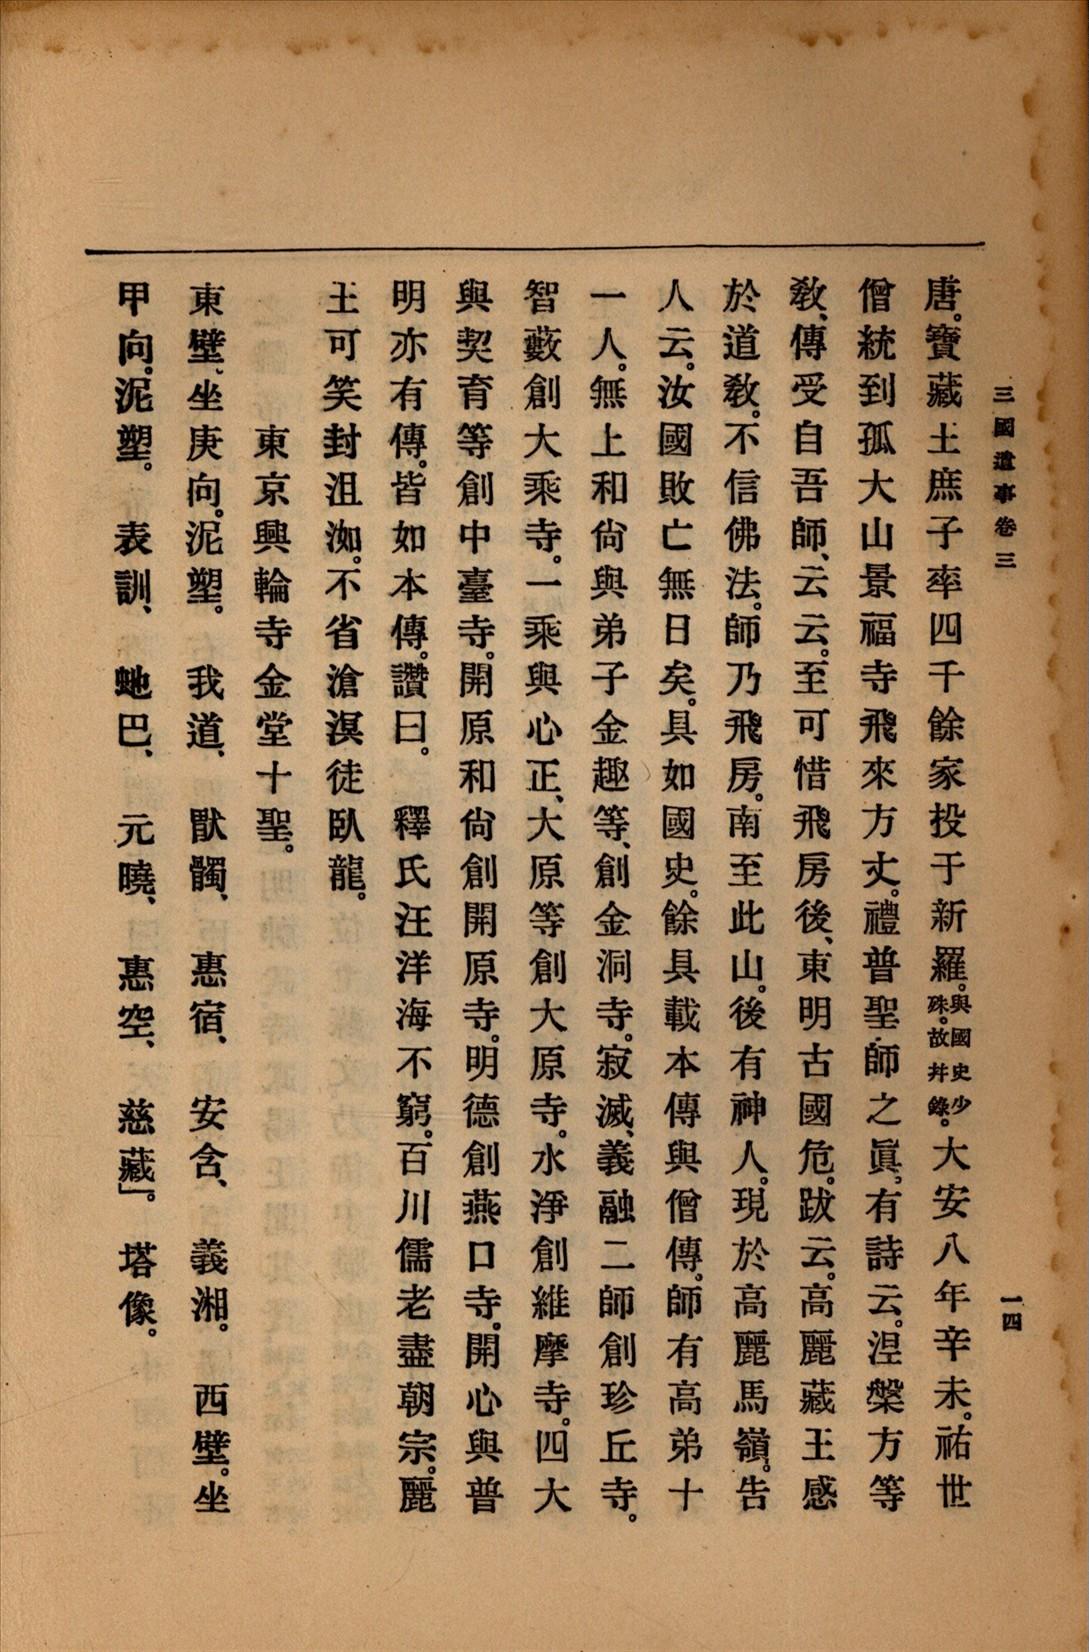 三國遺事卷三
一四
唐。寶藏王庶子率四千餘家投于新羅。與國史少殊。故幷錄。大安八年辛未。祐世
僧統到孤大山景福寺飛來方丈。禮普聖師之眞。有詩云。涅槃方等
敎、傳受自吾師、云云。至可惜飛房後、東明古國危。跋云。高麗藏王感
於道敎。不信佛法。師乃飛房。南至此山。後有神人。現於高麗馬嶺。告
人云。汝國敗亡無日矣。具如國史。餘具載本傳與僧傳。師有高弟十
一人。無上和尙與弟子金趣等、創。金洞寺。寂滅、義融二師創珍丘寺。
智藪創大乘寺。一乘與心正、大原等創大原寺。水淨創維摩寺。四大
與契育等創中臺寺。開原和尙創開原寺。明德創燕口寺。開心與普
明亦有傳。皆如本傳。讚曰。 釋氏汪洋海不窮。百川儒老盡朝宗。麗
王可笑封沮洳。不省滄溟徒臥龍。
東京興輪寺金堂十聖。
東壁、坐庚向。泥塑。 我道、 猒髑、 惠宿、 安含、 義湘。 西壁。坐
甲向。泥塑。 表訓、 虵巴、 元曉、 惠空、 慈藏」。 塔像。